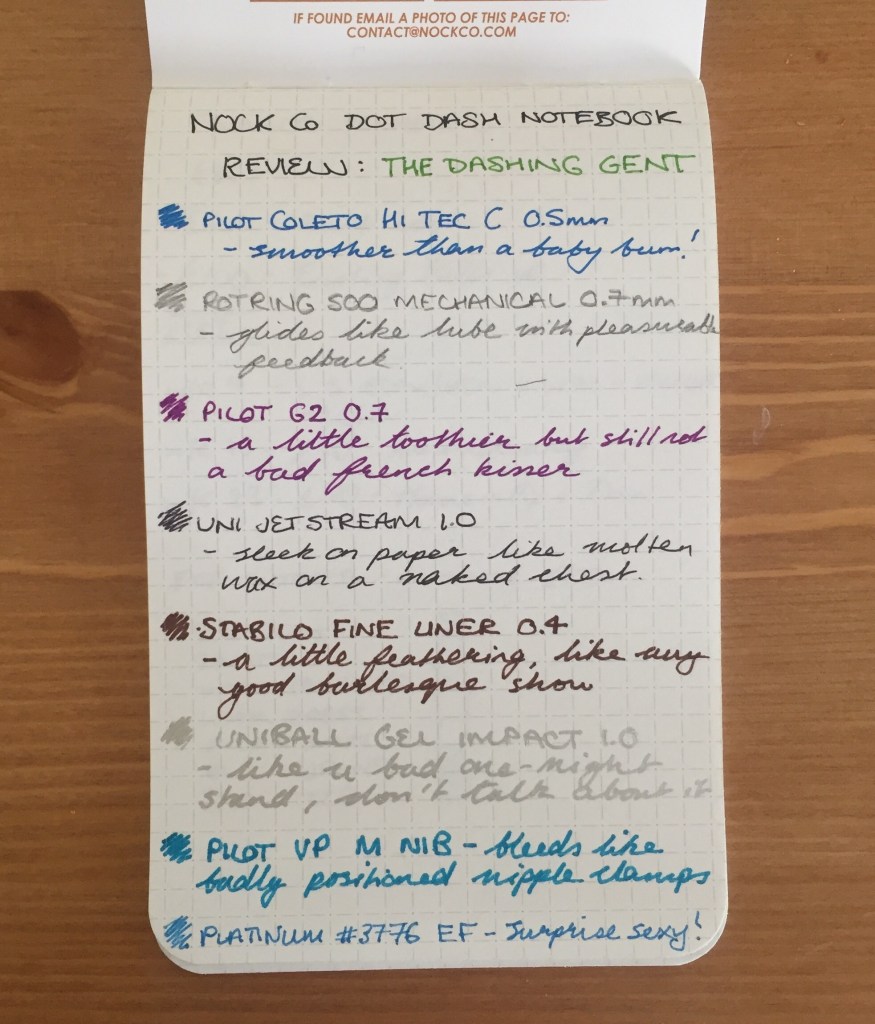 IF FOUND EMAIL A PHOTO OF THIS PAGE TO:
CONTACT@NOCKCO.COM
NOCK Co DOT DASH NOTEBOOK
REVIEW: THE DASHING GENT
PILOT COLETO HI TEC C 0.5mm
- smoother than a baby bum!
ROTRING 500 MECHANICAL 0.7mm
- glides like lube with pleasurable
feedback
PILOT G2 0.7
- a little toothier but still not
a bad french kisser
UNI JETSTREAM 1.0
- sleek on paper like molten
wax on a naked chest.
STABILO FINE LINER 0.4
- a little feathering, like any
good burlesque show
UNIBALL GEL IMPACT 1.0
- like a bad one-night
stand, don't talk about it
PILOT VP M NIB - bleeds like
badly positioned nipple clamps
PLATINUM #3776 EF - Surprise sexy!